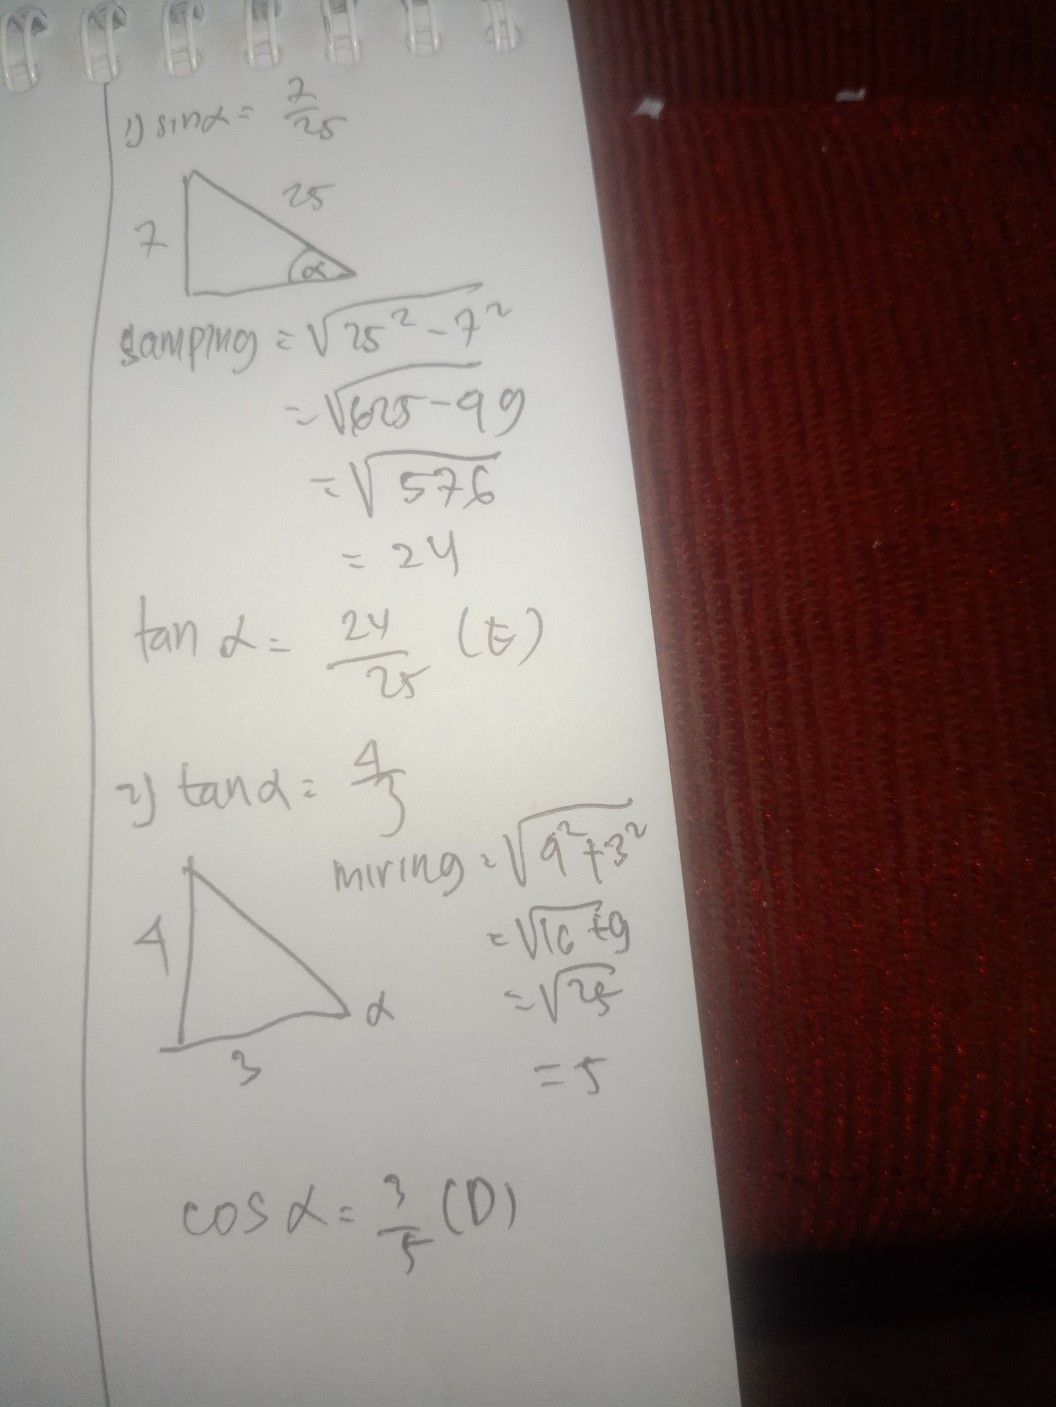 1) sin α = 7/25
25
7
α
samping = √25² - 7²
= √625 - 49
= √576
= 24
tan α = 24/25 (E)
2) tan α = 4/3
miring = √4² + 3²
= √16 + 9
= √25
= 5
4
α
3
cos α = 3/5 (D)